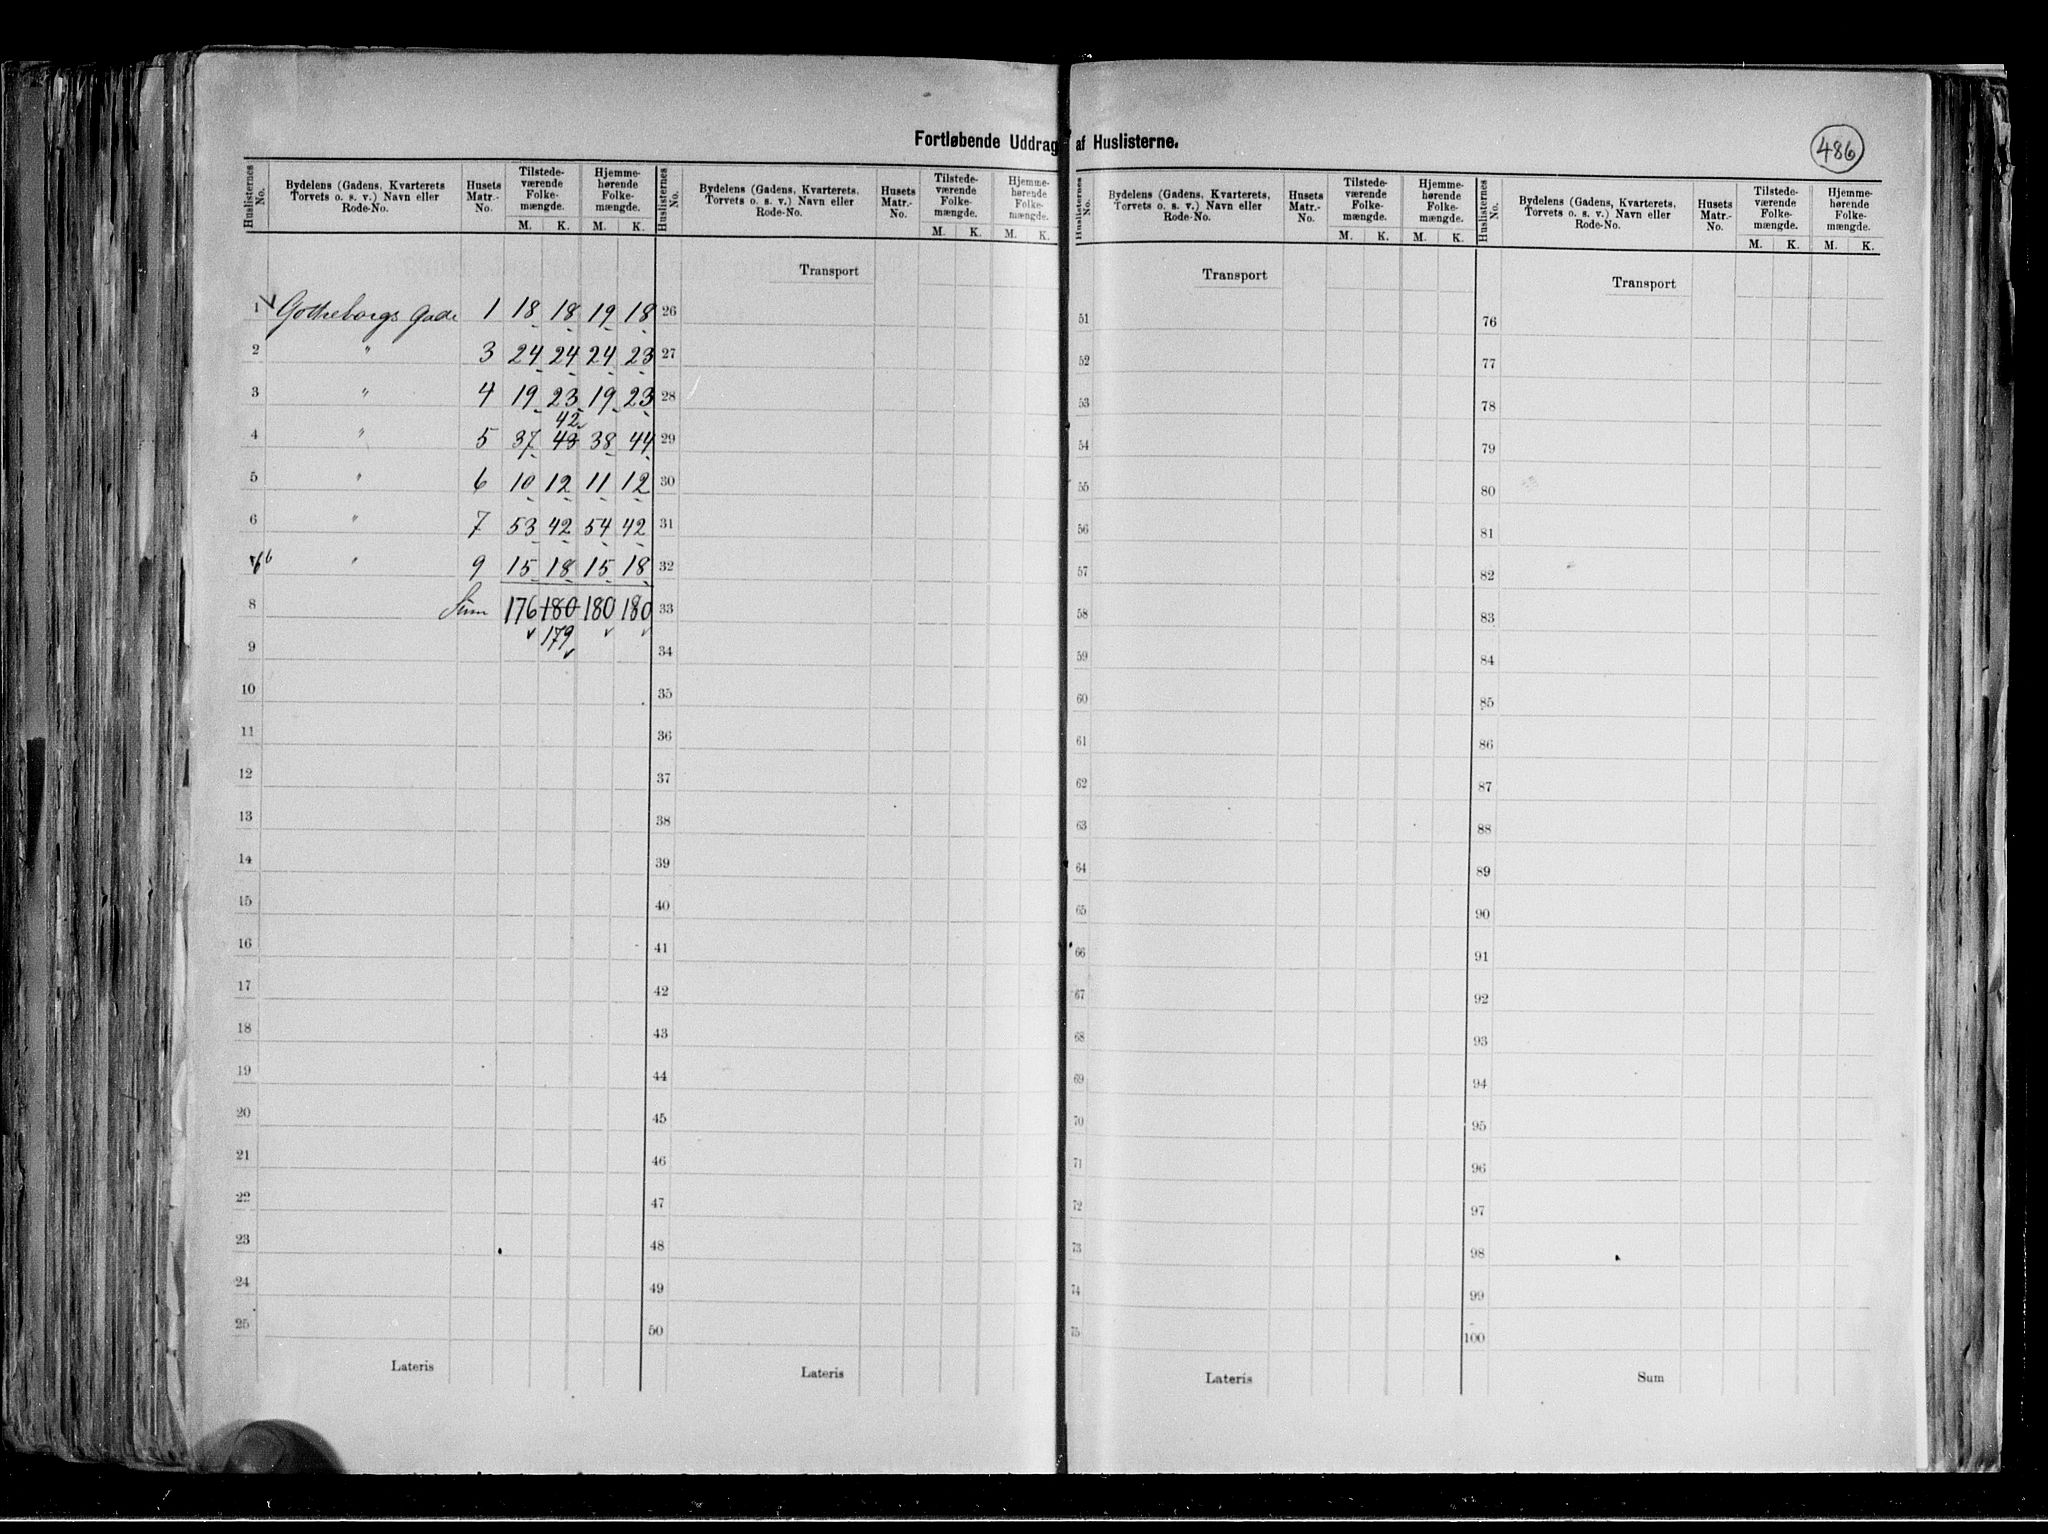 Fortløbende Uddrag af Huslisterne.
486
Huslisternes No. | Bydelens (Gadens, Kvarterets Torvets o. s. v.) Navn eller Rode-No. | Husets Matr.-No. | Tilstede-værende Folke-mængde. M. K. | Hjemme-hørende Folke-mængde. M. K.
1 Gothreborgs Gade 1 18 18 19 18
2 " 3 24 24 24 23
3 " 4 19 23 19 23
42
4 " 5 37 43 38 44
5 " 6 10 12 11 12
6 " 7 53 42 54 42
" 9 15 18 15 18
8 Sum 176 180 180 180
179
9
10
11
12
13
14
15
16
17
18
19
20
21
22
23
24
25
Lateris
Huslisternes No. | Bydelens (Gadens, Kvarterets, Torvets o. s. v.) Navn eller Rode-No. | Husets Matr.-No. | Tilstede-værende Folke-mængde. M. K. | Hjemme-hørende Folke-mængde. M. K.
Transport
26
27
28
29
30
31
32
33
34
35
36
37
38
39
40
41
42
43
44
45
46
47
48
49
50
Lateris
Huslisternes No. | Bydelens (Gadens, Kvarterets, Torvets o. s. v.) Navn eller Rode-No. | Husets Matr.-No. | Tilstede-værende Folke-mængde. M. K. | Hjemme-hørende Folke-mængde. M. K.
Transport
51
52
53
54
55
56
57
58
59
60
61
62
63
64
65
66
67
68
69
70
71
72
73
74
75
Lateris
Huslisternes No. | Bydelens (Gadens, Kvarterets, Torvets o. s. v.) Navn eller Rode-No. | Husets Matr.-No. | Tilstede-værende Folke-mængde. M. K. | Hjemme-hørende Folke-mængde. M. K.
Transport
76
77
78
79
80
81
82
83
84
85
86
87
88
89
90
91
92
93
94
95
96
97
98
99
100
Sum